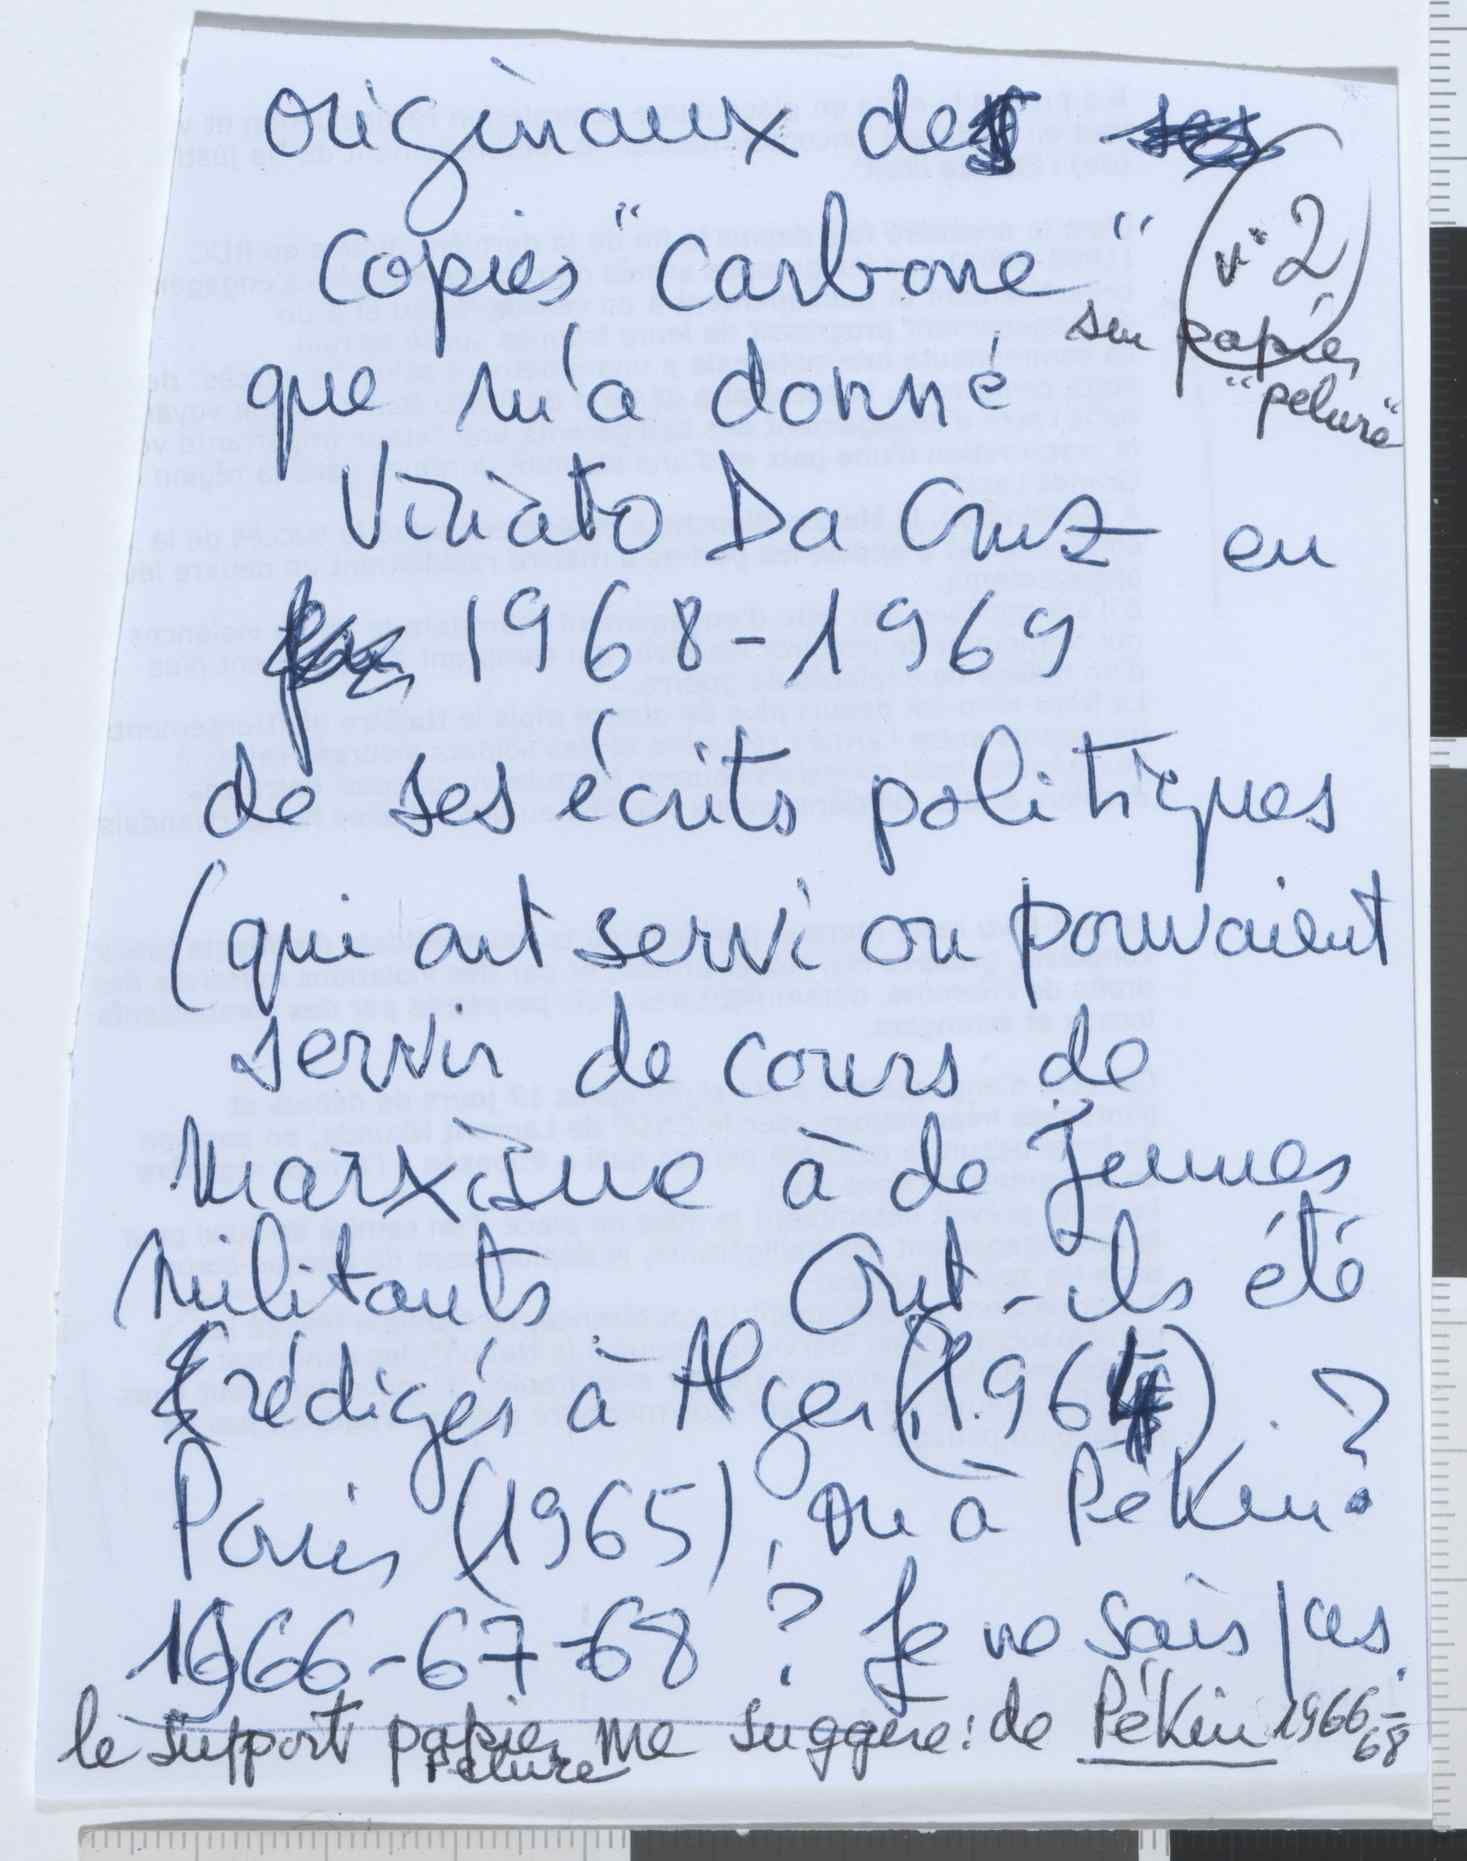 originaux des
copies "Carbone"
n° 2
sur papier
"pelure"
que m'a donné
Viriato Da Cruz en
1968-1969
de ses écrits politiques
(qui ont servi ou pouvaient
servir de cours de
Marxisme à de jeunes
militants. Ont-ils été
rédigés à Alger (1964) ?
Paris (1965), ou à Pékin?
1966-67-68 ? Je ne sais pas.
le support papier me suggère: de Pékin 1966-68
pelure